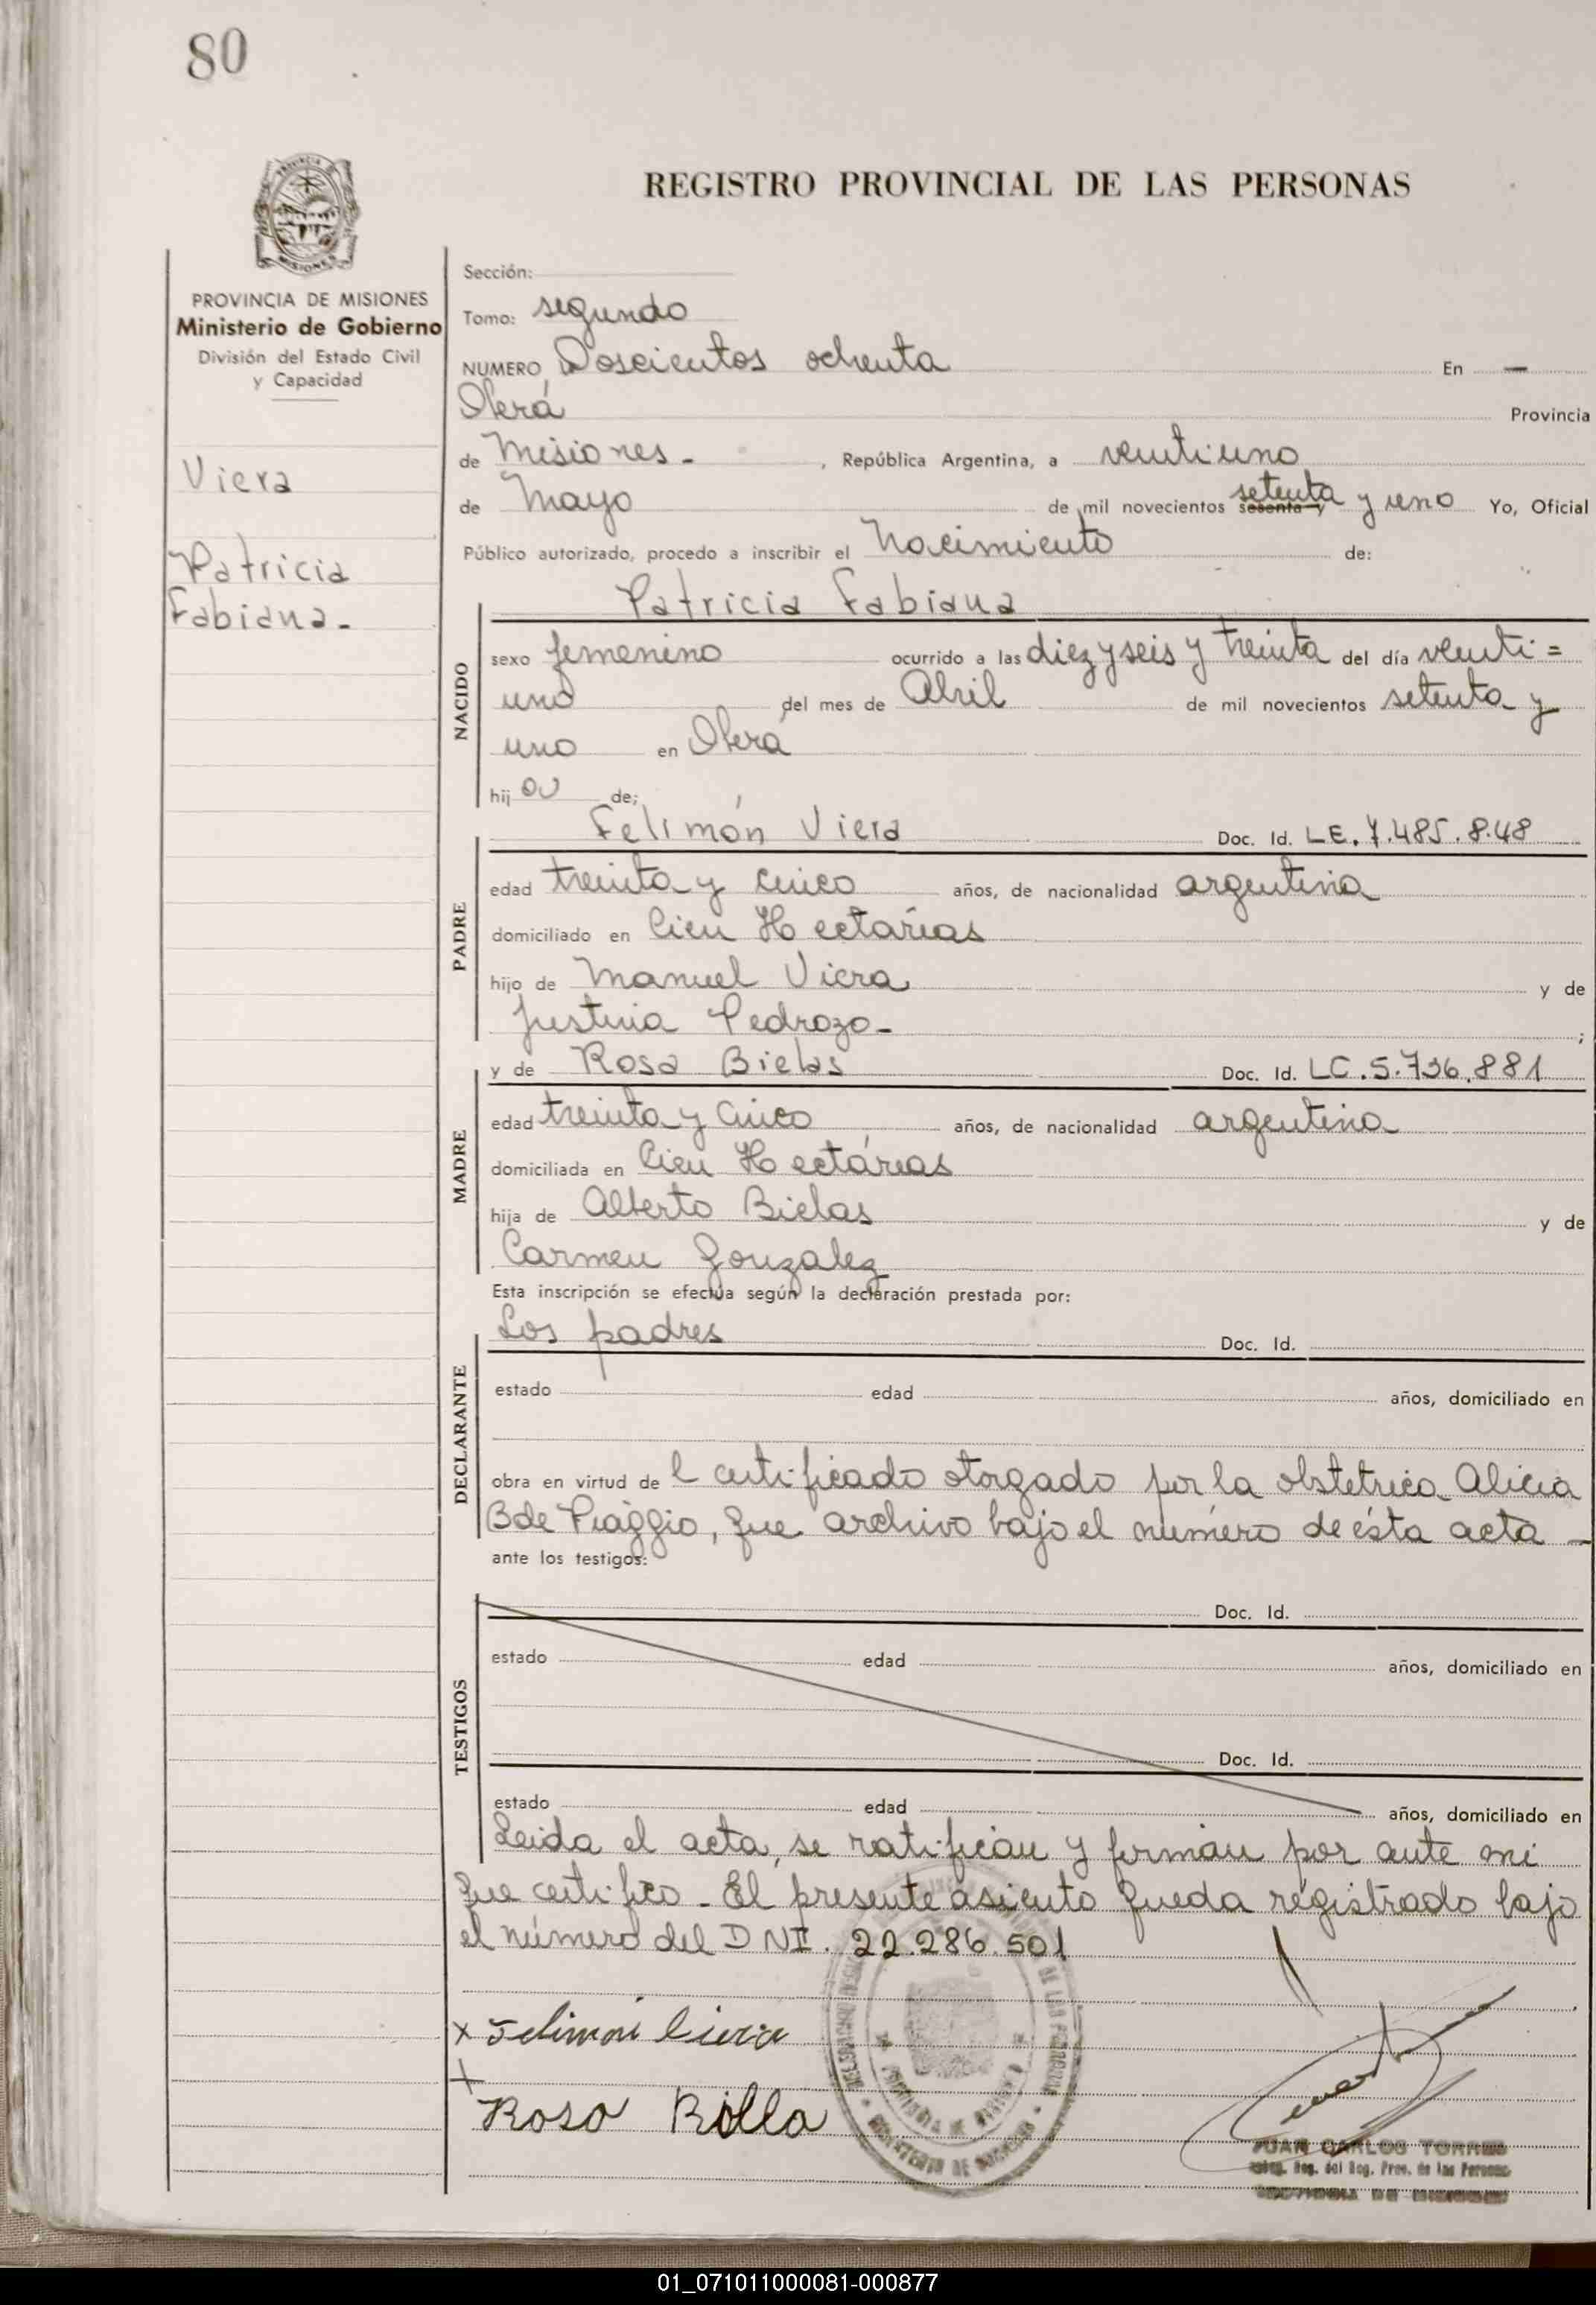 80
REGISTRO PROVINCIAL DE LAS PERSONAS
PROVINCIA DE MISIONES
Ministerio de Gobierno
División del Estado Civil
y Capacidad
Viera
Patricia
Fabiana-
Sección:
Tomo: segundo
NUMERO Doscientos ochenta En —
Oberá Provincia
de Misiones- , República Argentina, a ventiuno
de Mayo de mil novecientos sesenta y setenta y uno Yo, Oficial
Público autorizado, procedo a inscribir el Nacimiento de:
NACIDO
Patricia Fabiana
sexo femenino ocurrido a las diez y seis y treinta del día venti=
uno del mes de Abril de mil novecientos setenta y
uno en Oberá
hij a de;
PADRE
Felimón Viera Doc. Id. LE. 7.485.848
edad treinta y cinco años, de nacionalidad argentina
domiciliado en Cien Hectáreas
hijo de Manuel Viera y de
Justina Pedrozo- ;
MADRE
y de Rosa Bielas Doc. Id. LC.5.736.881
edad treinta y cinco años, de nacionalidad argentina
domiciliada en Cien Hectáreas
hija de Alberto Bielas y de
Carmen Gonzalez
Esta inscripción se efectúa según la declaración prestada por:
DECLARANTE
Los padres Doc. Id.
estado edad años, domiciliado en
obra en virtud de l certificado otorgado por la obstetrica Alicia
B de Piaggio, que archivo bajo el número de ésta acta —
ante los testigos:
TESTIGOS
Doc. Id.
estado edad años, domiciliado en
Doc. Id.
estado edad años, domiciliado en
Leida el acta, se ratifican y firman por ante mi
que certifico - El presente asiento queda registrado bajo
el número del DNI. 22.286.501
x Felimon Viera
x
Rosa Billa
JUAN CARLOS TORRES
Reg. del Reg. Prov. de las Personas
01_071011000081-000877